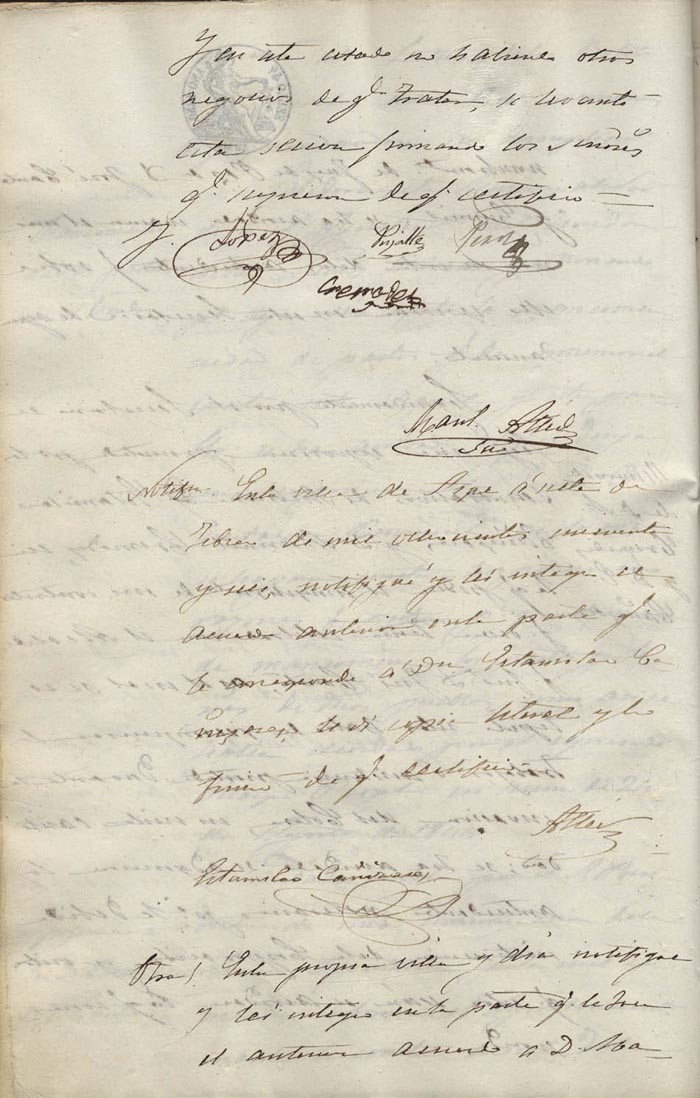 Y en este estado no habiendo otros
negocios de qe tratar, se levantó
esta sesion firmando los Señores
qe supieron de qe certifico =
J. López
Pujalte
Cremades
Manl. Alted
Srio
Notifn. En la villa de Aspe á siete de
Febro de mil ochocientos cincuenta
y seis, notifiqué y leí integro el
acuerdo anterior en la parte qe
le corresponde á Dn Estanislao Ca
ñizares, le dí copia literal y lo
firmó de qe certifico
Alted
Estanislao Cañizares
Otra/ En la propia villa y dia notifique
y leí integro en la parte qe le toca
el anterior acuerdo a D. Ma-